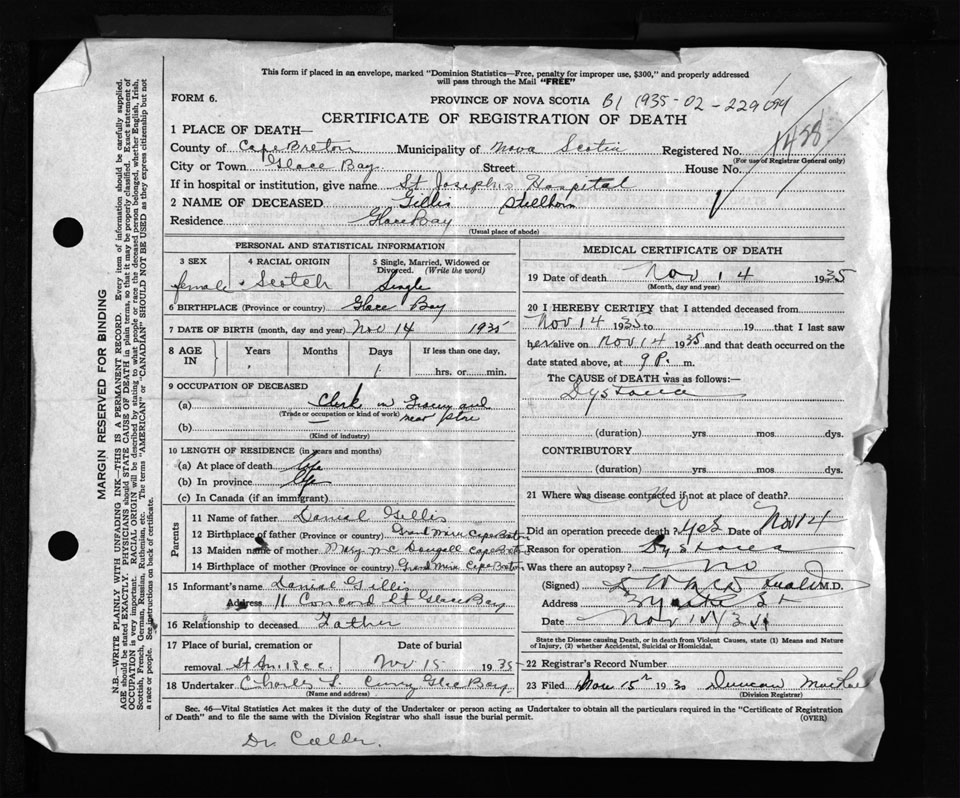 This form if placed in an envelope, marked "Dominion Statistics—Free, penalty for improper use, $300," and properly addressed
will pass through the Mail "FREE"
FORM 6.
PROVINCE OF NOVA SCOTIA B1 1935-02-229094
CERTIFICATE OF REGISTRATION OF DEATH
1 PLACE OF DEATH—
County of Cape Breton Municipality of Nova Scotia Registered No. 1488
(For use of Registrar General only)
City or Town Glace Bay Street House No.
If in hospital or institution, give name St Joseph's Hospital
2 NAME OF DECEASED Gillis Stillborn
Residence Glace Bay
(Usual place of abode)
PERSONAL AND STATISTICAL INFORMATION
3 SEX 4 RACIAL ORIGIN 5 Single, Married, Widowed or Divorced. (Write the word)
female Scotch Single
6 BIRTHPLACE (Province or country) Glace Bay
7 DATE OF BIRTH (month, day and year) Nov 14 1935
8 AGE IN Years Months Days If less than one day,
1 hrs. or min.
9 OCCUPATION OF DECEASED
(a) Clerk in and
(Trade or occupation or kind of work)
(b)
(Kind of industry)
10 LENGTH OF RESIDENCE (in years and months)
(a) At place of death life
(b) In province life
(c) In Canada (if an immigrant)
Parents
11 Name of father Danial Gillis
12 Birthplace of father (Province or country) Grand Mira Cape Breton
13 Maiden name of mother Mary Mc Dougall Cape Breton
14 Birthplace of mother (Province or country) Grand Mira Cape Breton
15 Informant's name Danial Gillis
Address 11 Concord St Glace Bay
16 Relationship to deceased Father
17 Place of burial, cremation or removal Date of burial
Nov 15 1935
18 Undertaker Charles S. Curry Glace Bay
(Name and address)
MEDICAL CERTIFICATE OF DEATH
19 Date of death Nov 14 1935
(Month, day and year)
20 I HEREBY CERTIFY that I attended deceased from
Nov 14 1935 to 19 that I last saw
her alive on Nov 14 1935 and that death occurred on the
date stated above, at 9 P. m.
The CAUSE of DEATH was as follows:—
Dystocia
(duration) yrs mos dys.
CONTRIBUTORY
(duration) yrs mos dys.
21 Where was disease contracted if not at place of death?
Did an operation precede death? yes Date of Nov 14
Reason for operation Dystocia
Was there an autopsy? No
(Signed) M.D.
Address St
Date Nov
State the Disease causing Death, or in death from Violent Causes, state (1) Means and Nature
of Injury, (2) whether Accidental, Suicidal or Homicidal.
22 Registrar's Record Number
23 Filed Nov 15th 193 Duncan
(Division Registrar)
Sec. 46—Vital Statistics Act makes it the duty of the Undertaker or person acting as Undertaker to obtain all the particulars required in the "Certificate of Registration
of Death" and to file the same with the Division Registrar who shall issue the burial permit. (OVER)
Dr. Calder.
MARGIN RESERVED FOR BINDING
N.B.—WRITE PLAINLY WITH UNFADING INK—THIS IS A PERMANENT RECORD. Every item of information should be carefully supplied.
AGE should be stated EXACTLY. PHYSICIANS should STATE CAUSE OF DEATH in plain terms, so that it may be properly classified. Exact statement of
OCCUPATION is very important. RACIAL ORIGIN will be described by stating to what people or race the deceased person belonged, whether English, Irish,
Scottish, French, German, Russian, Ruthenian, etc. The terms "AMERICAN" or "CANADIAN" SHOULD NOT BE USED as they express citizenship but not
a race or people. See instructions on back of certificate.